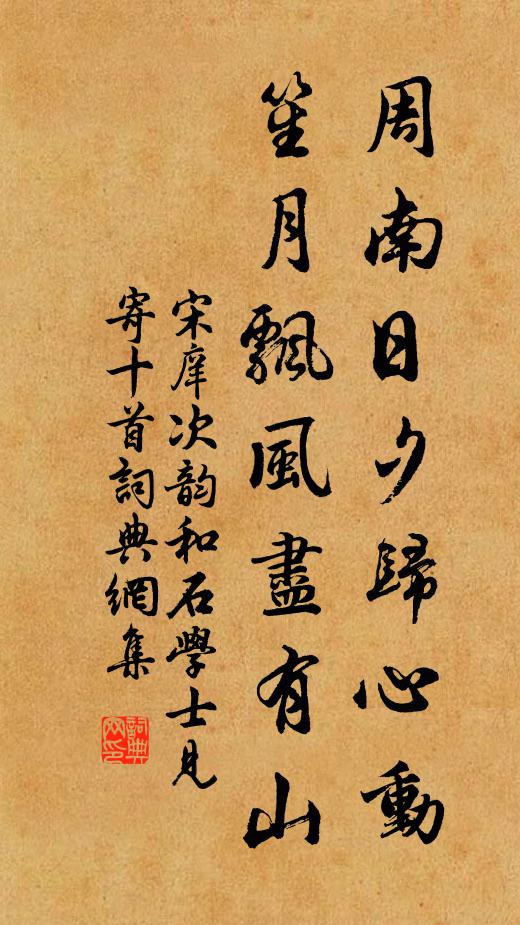 周南日夕歸心動
笙月飄風盡有山
宋庠次韵和石學士見
寄十首詞典網集
詞典網印